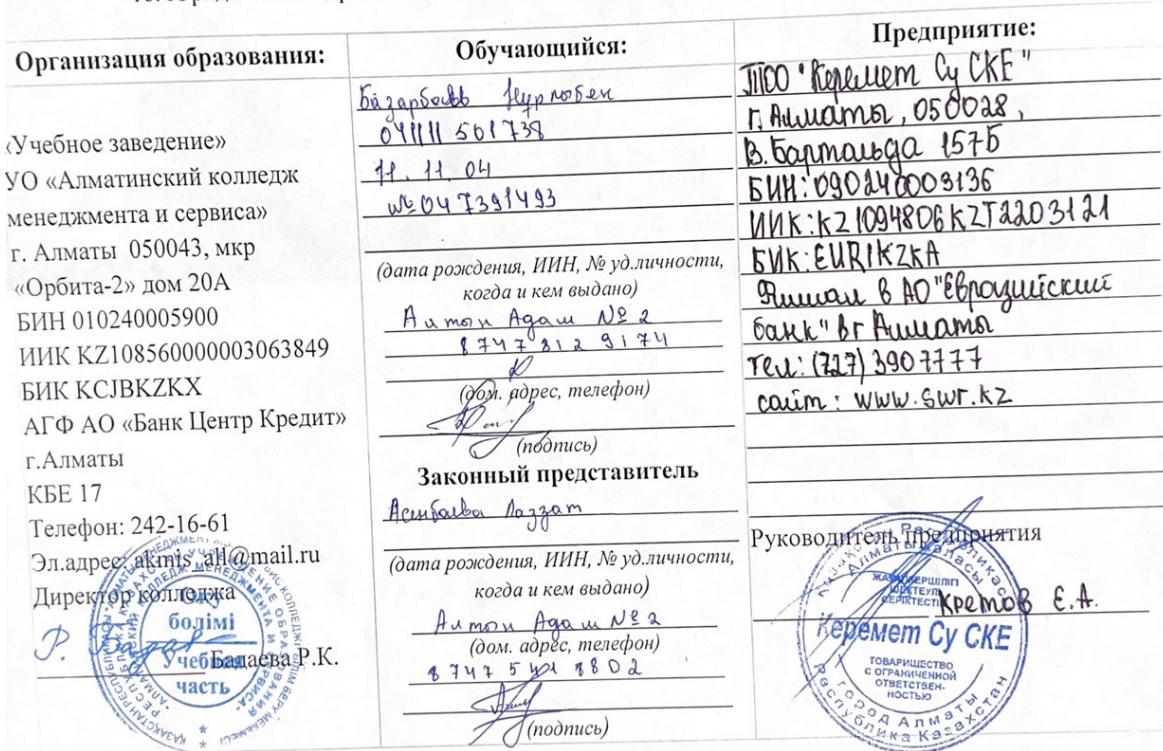 Организация образования:
«Учебное заведение»
УО «Алматинский колледж
менеджмента и сервиса»
г. Алматы 050043, мкр
«Орбита-2» дом 20А
БИН 010240005900
ИИК KZ108560000003063849
БИК KCJBKZKX
АГФ АО «Банк Центр Кредит»
г.Алматы
КБЕ 17
Телефон: 242-16-61
Эл.адрес: akmis_all@mail.ru
Директор колледжа
Бадаева Р.К.
Оқу
бөлімі
Учебная
часть
Обучающийся:
041111 501738
11. 11 04
№ 047391493
(дата рождения, ИИН, № уд.личности,
когда и кем выдано)
Алтын Адам № 2
8747 812 9174
(дом. адрес, телефон)
(подпись)
Законный представитель
Асенбаева Лаззат
(дата рождения, ИИН, № уд.личности,
когда и кем выдано)
Алтын Адам № 2
(дом. адрес, телефон)
8802
(подпись)
Предприятие:
ТОО "Керемет Су СКЕ"
г. Алматы, 050028,
В. Бартольда 157Б
БИН: 090240003136
ИИК: KZ1094806KZT2203121
БИК: EURIKZKA
Филиал в АО "Евразийский
банк" в г Алматы
Тел: (727) 3907777
сайт: www.swr.kz
Руководитель предприятия
Кретов Е.А.
Қазақстан Республикасы
Алматы қаласы
ЖАУАПКЕРШІЛІГІ
ШЕКТЕУЛІ
СЕРІКТЕСТІГІ
Керемет Су СКЕ
ТОВАРИЩЕСТВО
С ОГРАНИЧЕННОЙ
ОТВЕТСТВЕН-
НОСТЬЮ
город Алматы
Республика Казахстан